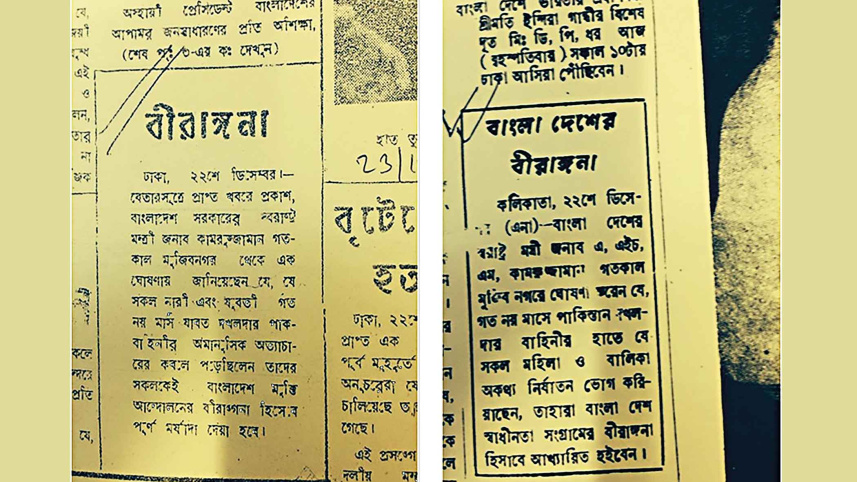 বে,
অস্থায়ী প্রেসিডেন্ট বাংলাদেশের
আপামর জনসাধারণের প্রতি অশিক্ষা,
(শেষ পৃঃ ৩-এর কঃ দেখুন)
এই
ও
লন,
তার
না
জক
বীরাঙ্গনা
ঢাকা, ২২শে ডিসেম্বর।—
বেতারসূত্রে প্রাপ্ত খবরে প্রকাশ,
বাংলাদেশ সরকারের স্বরাষ্ট্র
মন্ত্রী জনাব কামরুজ্জামান গত-
কাল মুজিবনগর থেকে এক
ঘোষণায় জানিয়েছেন যে, যে
সকল নারী এবং যুবতী গত
নয় মাস যাবত দখলদার পাক-
বাহিনীর অমানুষিক অত্যাচা-
রের কবলে পড়েছিলেন তাদের
সকলকেই বাংলাদেশ মুক্তি
আন্দোলনের বীরাঙ্গনা হিসেবে
পূর্ণ মর্যাদা দেয়া হবে।
কলে
ন্দরে
প্রতি
যে,
হাত
23/1
বৃটে
হত
ঢাকা, ২২শে
প্রাপ্ত এক
পূর্ব মুহূর্তে
অনুচরেরা যে
চালিয়েছে
গেছে।
এই প্রসঙ্গে
দলীয়
বাংলা দেশে ভারতীয়
শ্রীমতি ইন্দিরা গান্ধীর বিশেষ
দূত মিঃ ডি, পি, ধর আজ
(বৃহস্পতিবার) সকাল ১০টায়
ঢাকা আসিয়া পৌঁছিবেন।
বাংলা দেশের
বীরাঙ্গনা
কলিকাতা, ২২শে ডিসে-
(এনা)—বাংলা দেশের
স্বরাষ্ট্র মন্ত্রী জনাব এ, এইচ,
এম, কামরুজ্জামান গতকাল
মুজিব নগরে ঘোষণা করেন যে,
গত নয় মাসে পাকিস্তান দখল-
দার বাহিনীর হাতে যে
সকল মহিলা ও বালিকা
অকথ্য নির্যাতন ভোগ করি-
য়াছেন, তাহারা বাংলা দেশ
স্বাধীনতা সংগ্রামের বীরাঙ্গনা
হিসাবে আখ্যায়িত হইবেন।